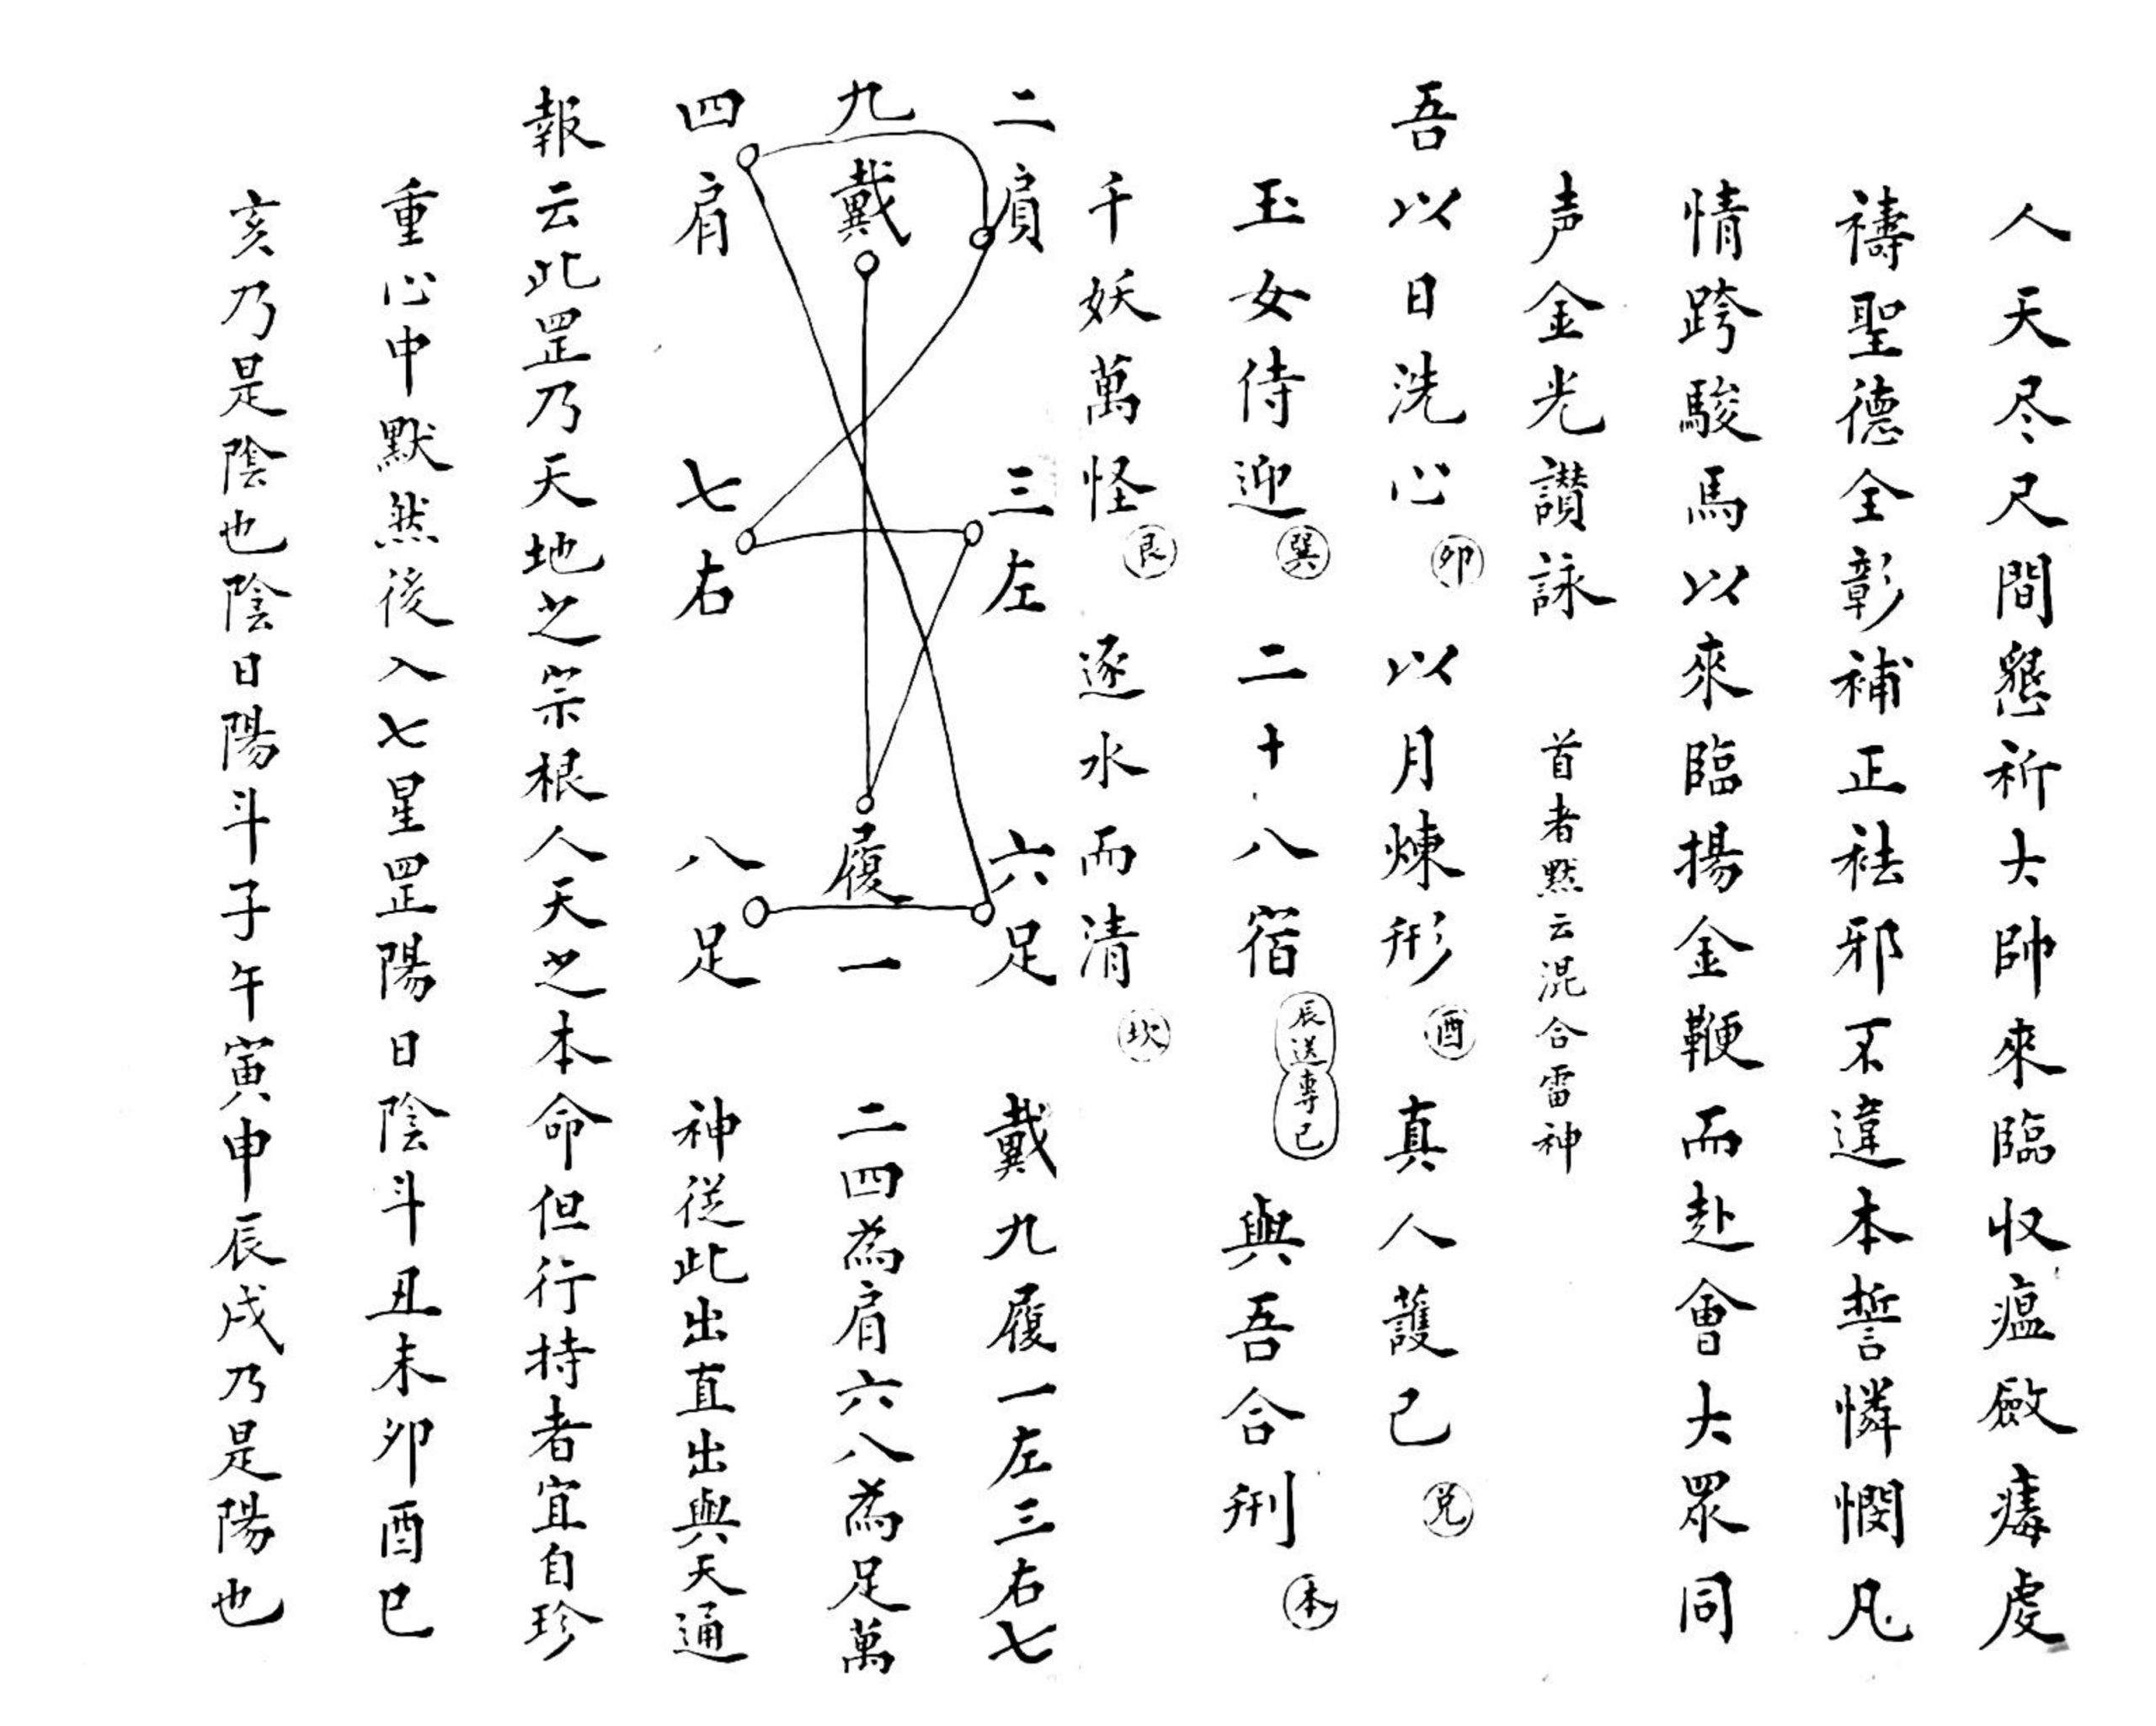 人天尽尺間懇祈大帥來臨収瘟斂瘴虔
禱聖德全彰補正袪邪不違本誓憐憫凡
情跨駿馬以來臨揚金鞭而赴會大眾同
声金光讚詠 首者默云混合雷神
吾以日洗心 卯 以月煉形 酉 真人護己 兌
玉女侍迎 巽 二十八宿 辰送專己 與吾合刑 本
千妖萬怪 艮 逐水而清 坎
二肩 三左 六足 戴九履一左三右七
九戴 履一 二四為肩六八為足萬
四肩 七右 八足 神從此出直出與天通
報云此罡乃天地之宗根人天之本命但行持者宜自珍
重心中默然後入七星罡陽日陰斗丑未卯酉巳
亥乃是陰也陰日陽斗子午寅申辰戌乃是陽也